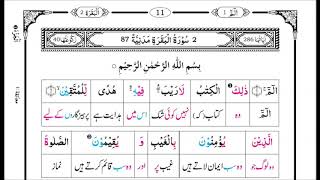 البقرة 2 11 الٓمّٓ 1
رکوعاتھا 40 2 سُوْرَةُ الْبَقَرَةِ مَدَنِيَّةٌ 87 اٰیاتھا 286
بِسْمِ اللّٰهِ الرَّحْمٰنِ الرَّحِيْمِ
الٓمّٓ ذٰلِكَ الْكِتٰبُ لَا رَيْبَ فِيْهِ هُدًى لِّلْمُتَّقِيْنَ
الٓمّٓ وہ کتاب (کہ) نہیں کوئی شک اس میں ہدایت ہے پرہیزگاروں کے لیے
الَّذِيْنَ يُؤْمِنُوْنَ بِالْغَيْبِ وَ يُقِيْمُوْنَ الصَّلٰوةَ
وہ لوگ جو وہ سب ایمان لاتے ہیں غیب پر اور وہ سب قائم کرتے ہیں نماز